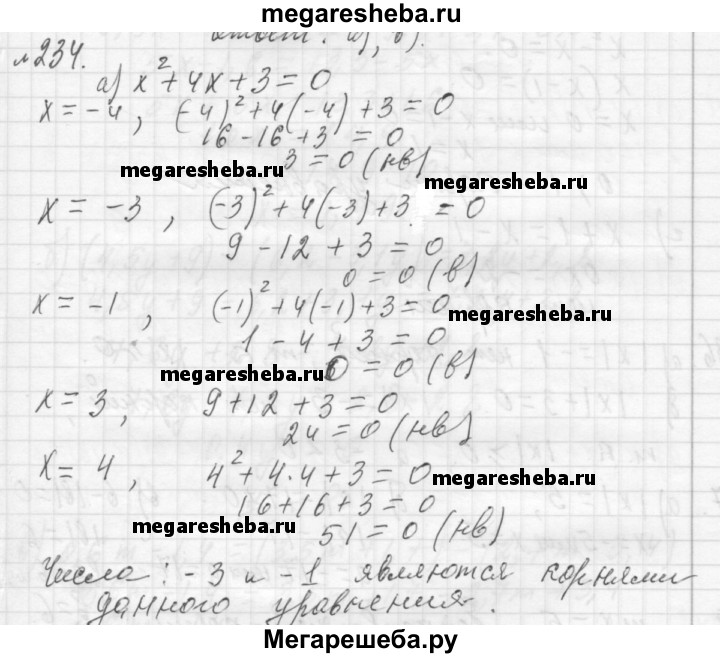 megaresheba.ru
ответ: а), в).
№234.
а) x²+4x+3=0
x=-4, (-4)²+4(-4)+3=0
16-16+3=0
3=0 (нв)
megaresheba.ru
megaresheba.ru
x=-3, (-3)²+4(-3)+3=0
9-12+3=0
0=0 (в)
x=-1, (-1)²+4(-1)+3=0
megaresheba.ru
1-4+3=0
megaresheba.ru
0=0 (в)
x=3, 9+12+3=0
24=0 (нв)
x=4, 4²+4·4+3=0
megaresheba.ru
16+16+3=0
megaresheba.ru
51=0 (нв)
Числа: -3 и -1 являются корнями
данного уравнения.
Мегарешеба.ру